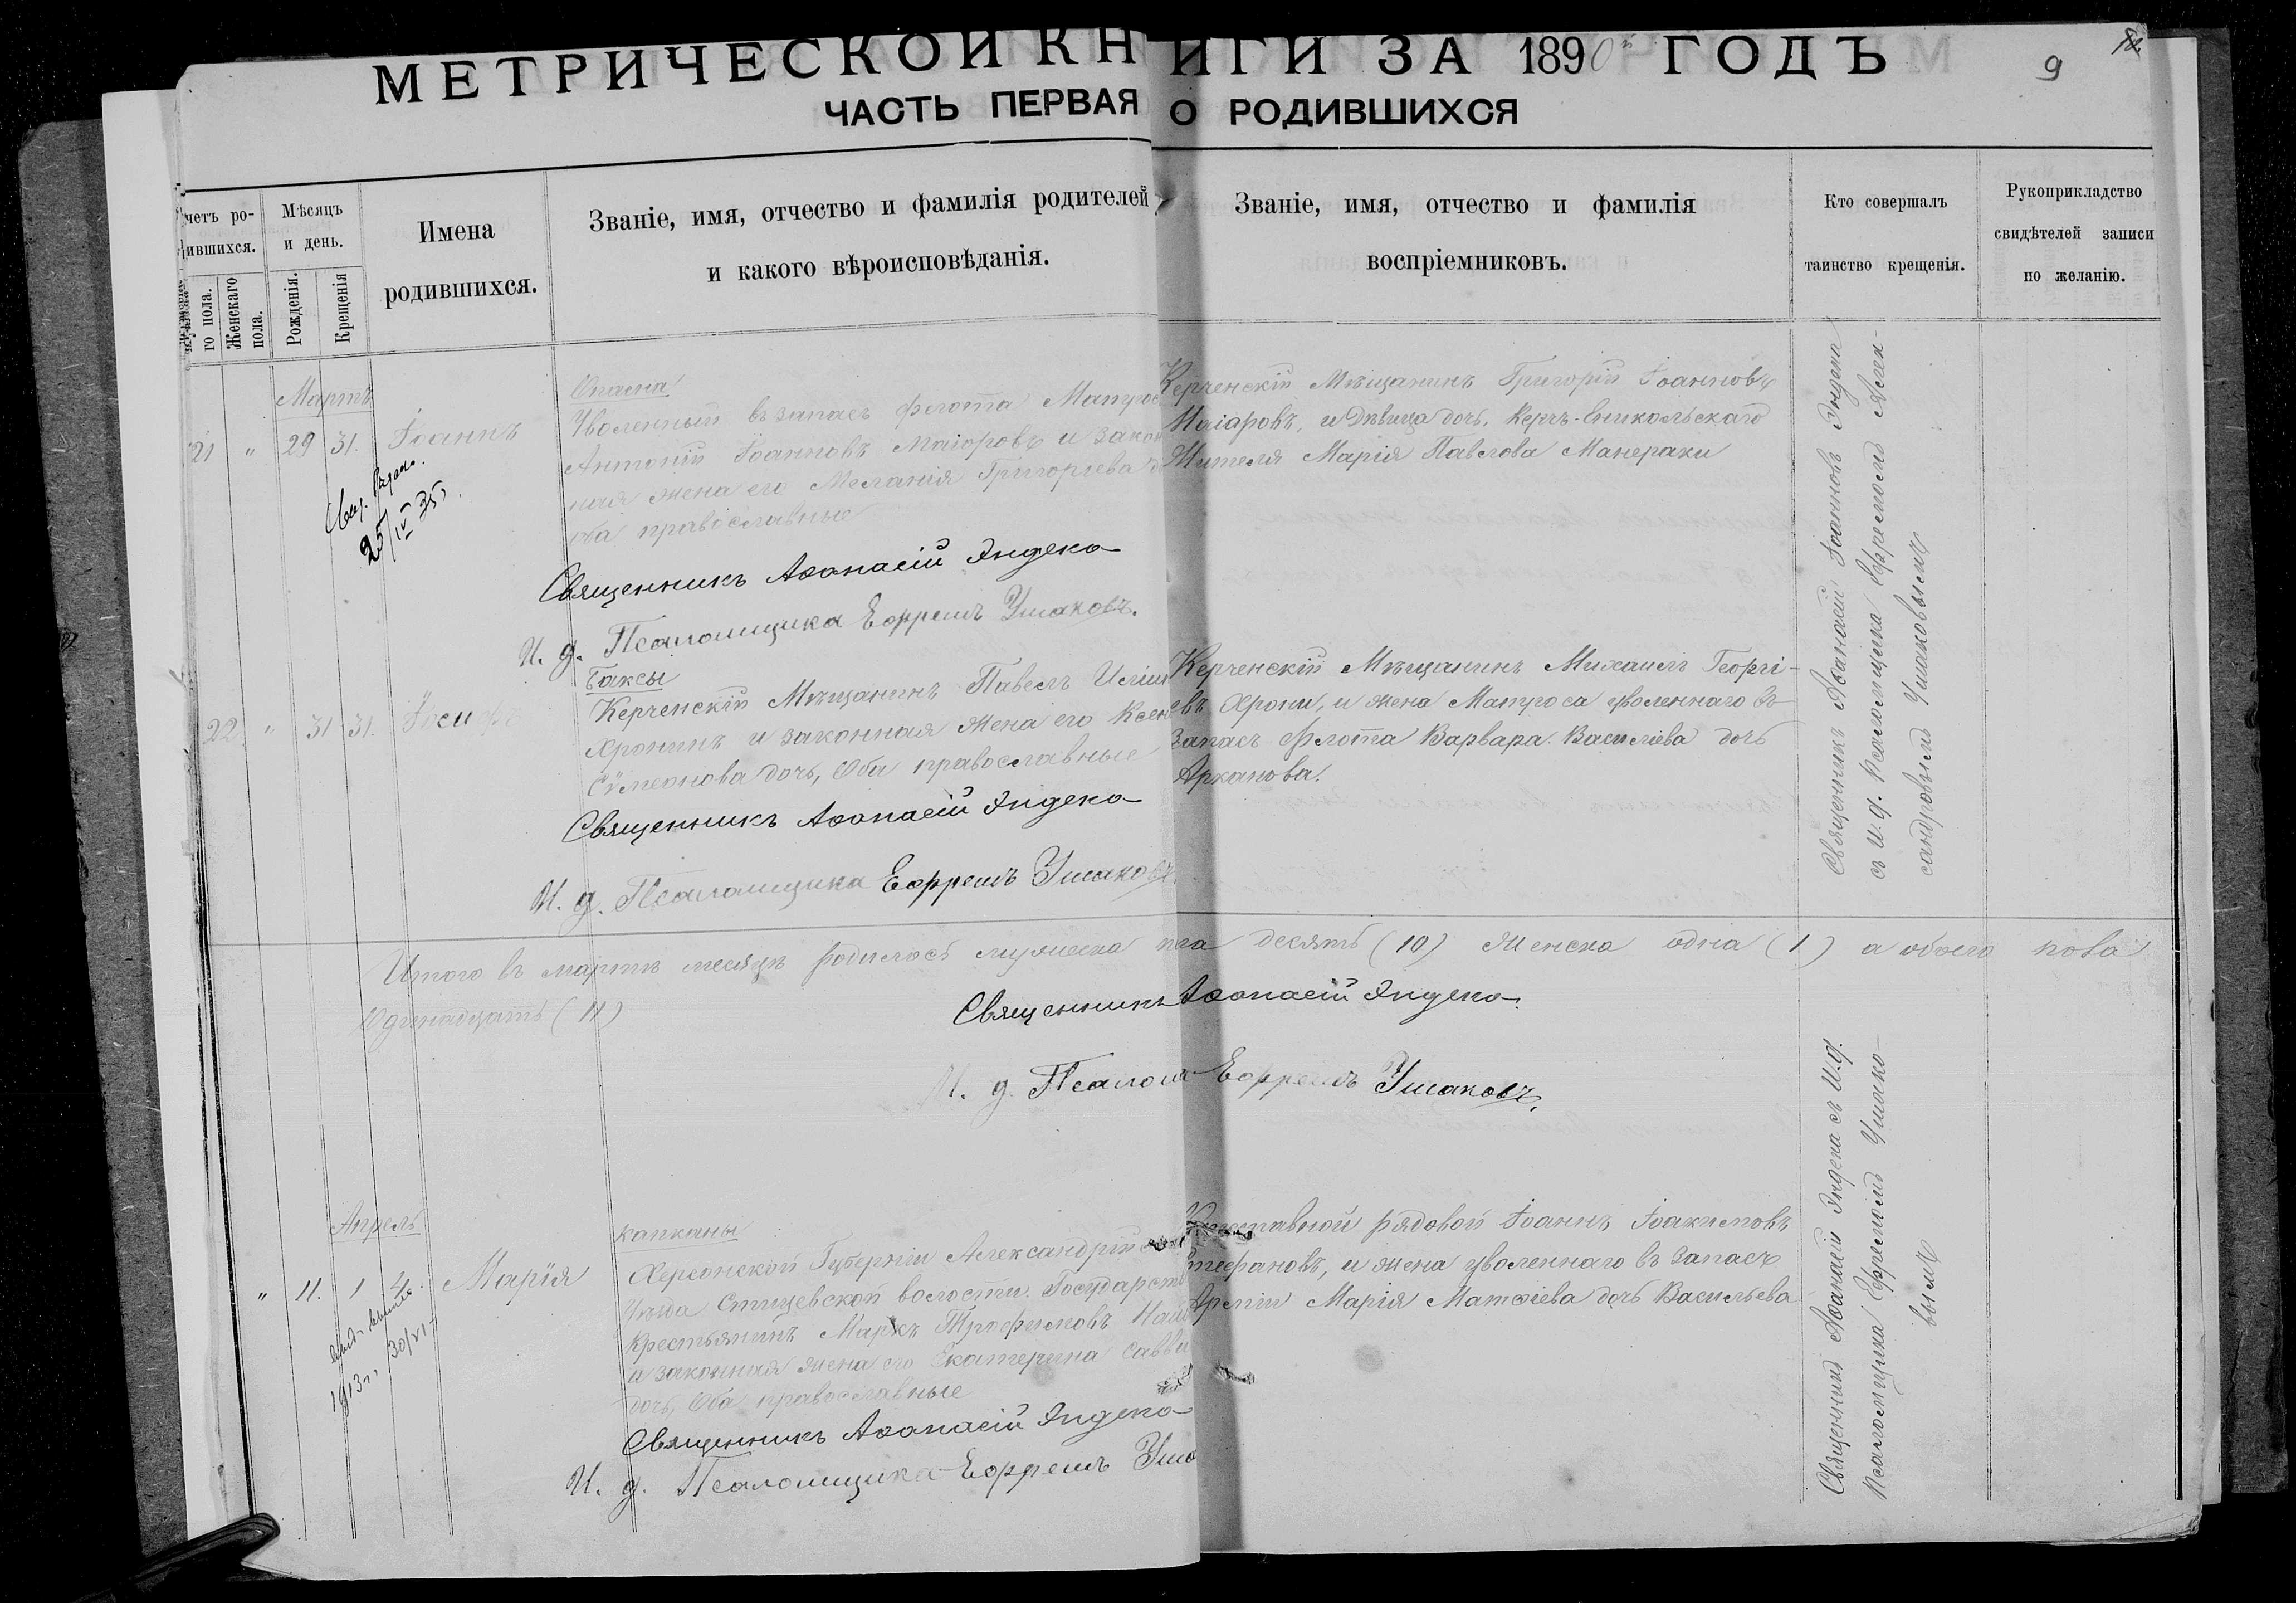 МЕТРИЧЕСКОЙ КНИГИ ЗА 1890й ГОДЪ
9
ЧАСТЬ ПЕРВАЯ О РОДИВШИХСЯ
четъ ро-
ившихся.
го пола.
Женскаго пола.
Мѣсяцъ
и день.
Рожденія.
Крещенія
Имена
родившихся.
Званіе, имя, отчество и фамилія родителей,
и какого вѣроисповѣданія.
Званіе, имя, отчество и фамилія
воспріемниковъ.
Кто совершалъ
таинство крещенія.
Рукоприкладство
свидѣтелей записи
по желанію.
Мартъ
21 " 29 31. Іоаннъ
25/IV 35г.
Опасна
Уволенный въ запасъ флота Матрос
Антоній Іоанновъ Маіоровъ и закон
ная жена его Меланія Григорьева д
оба православные
Священникъ Аѳанасій Яндека
И. д. Псаломщика Ефремъ Ушаковъ.
Керченскій Мѣщанинъ Григорій Іоанновъ
Маіаровъ, и Дѣвица дочь. Керчь-Еникольскаго
Жителя Марія Павлова Манераки
22 " 31 31. Іосифъ
Баксы
Керченскій Мѣщанинъ Павелъ Иліин
Хронинъ и законная жена его Ксен
Сѵмеонова дочь, Оба православные
Священникъ Аѳанасій Яндека
И. д. Псаломщика Ефремъ Ушаковъ.
Керченскій Мѣщанинъ Михаилъ Георгі-
евъ Хрони, и жена Матроса уволеннаго въ
запасъ флота Варвара Василіева дочь
Арканова.
Священникъ Аѳанасій Іоанновъ Яндека
съ и. д. Псаломщика Ефремомъ Алек-
сандровымъ Ушаковымъ
Итого въ мартѣ месяцѣ родилось мужеска пола десять (10) Женска одна (1) а обоего пола
Одинадцать (11)
Священникъ Аѳанасій Яндека.
И. д. Псалом Ефремъ Ушаковъ.
Апрель
" 11. 1 4. Марія
1913 г. 30/VI
капканы
Херсонской Губерніи Александрійск
Уѣзда Стицевской волости. Государств
Крестьянинъ Маркъ Трофимовъ
и законная жена его Екатерина Савви
дочь, Оба православные
Священникъ Аѳанасій Яндека
И. д. Псаломщика Ефремъ Уша
рядовой Іоаннъ Іоакимовъ
Стефановъ, и жена уволеннаго въ запасъ
Арміи Марія Матѳіева дочь Васильева
Священникъ Аѳанасій Яндека съ и. д.
Псаломщика Ефремомъ Ушако-
вымъ